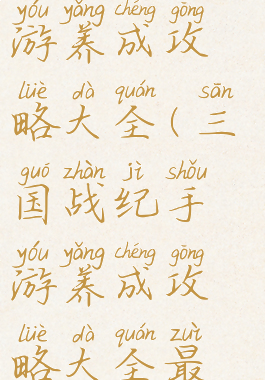 yóu yǎng chéng gōng
游养成攻
lüè dà quán sān
略大全(三
guó zhàn jì shǒu
国战纪手
yóu yǎng chéng gōng
游养成攻
lüè dà quán zuì
略大全最